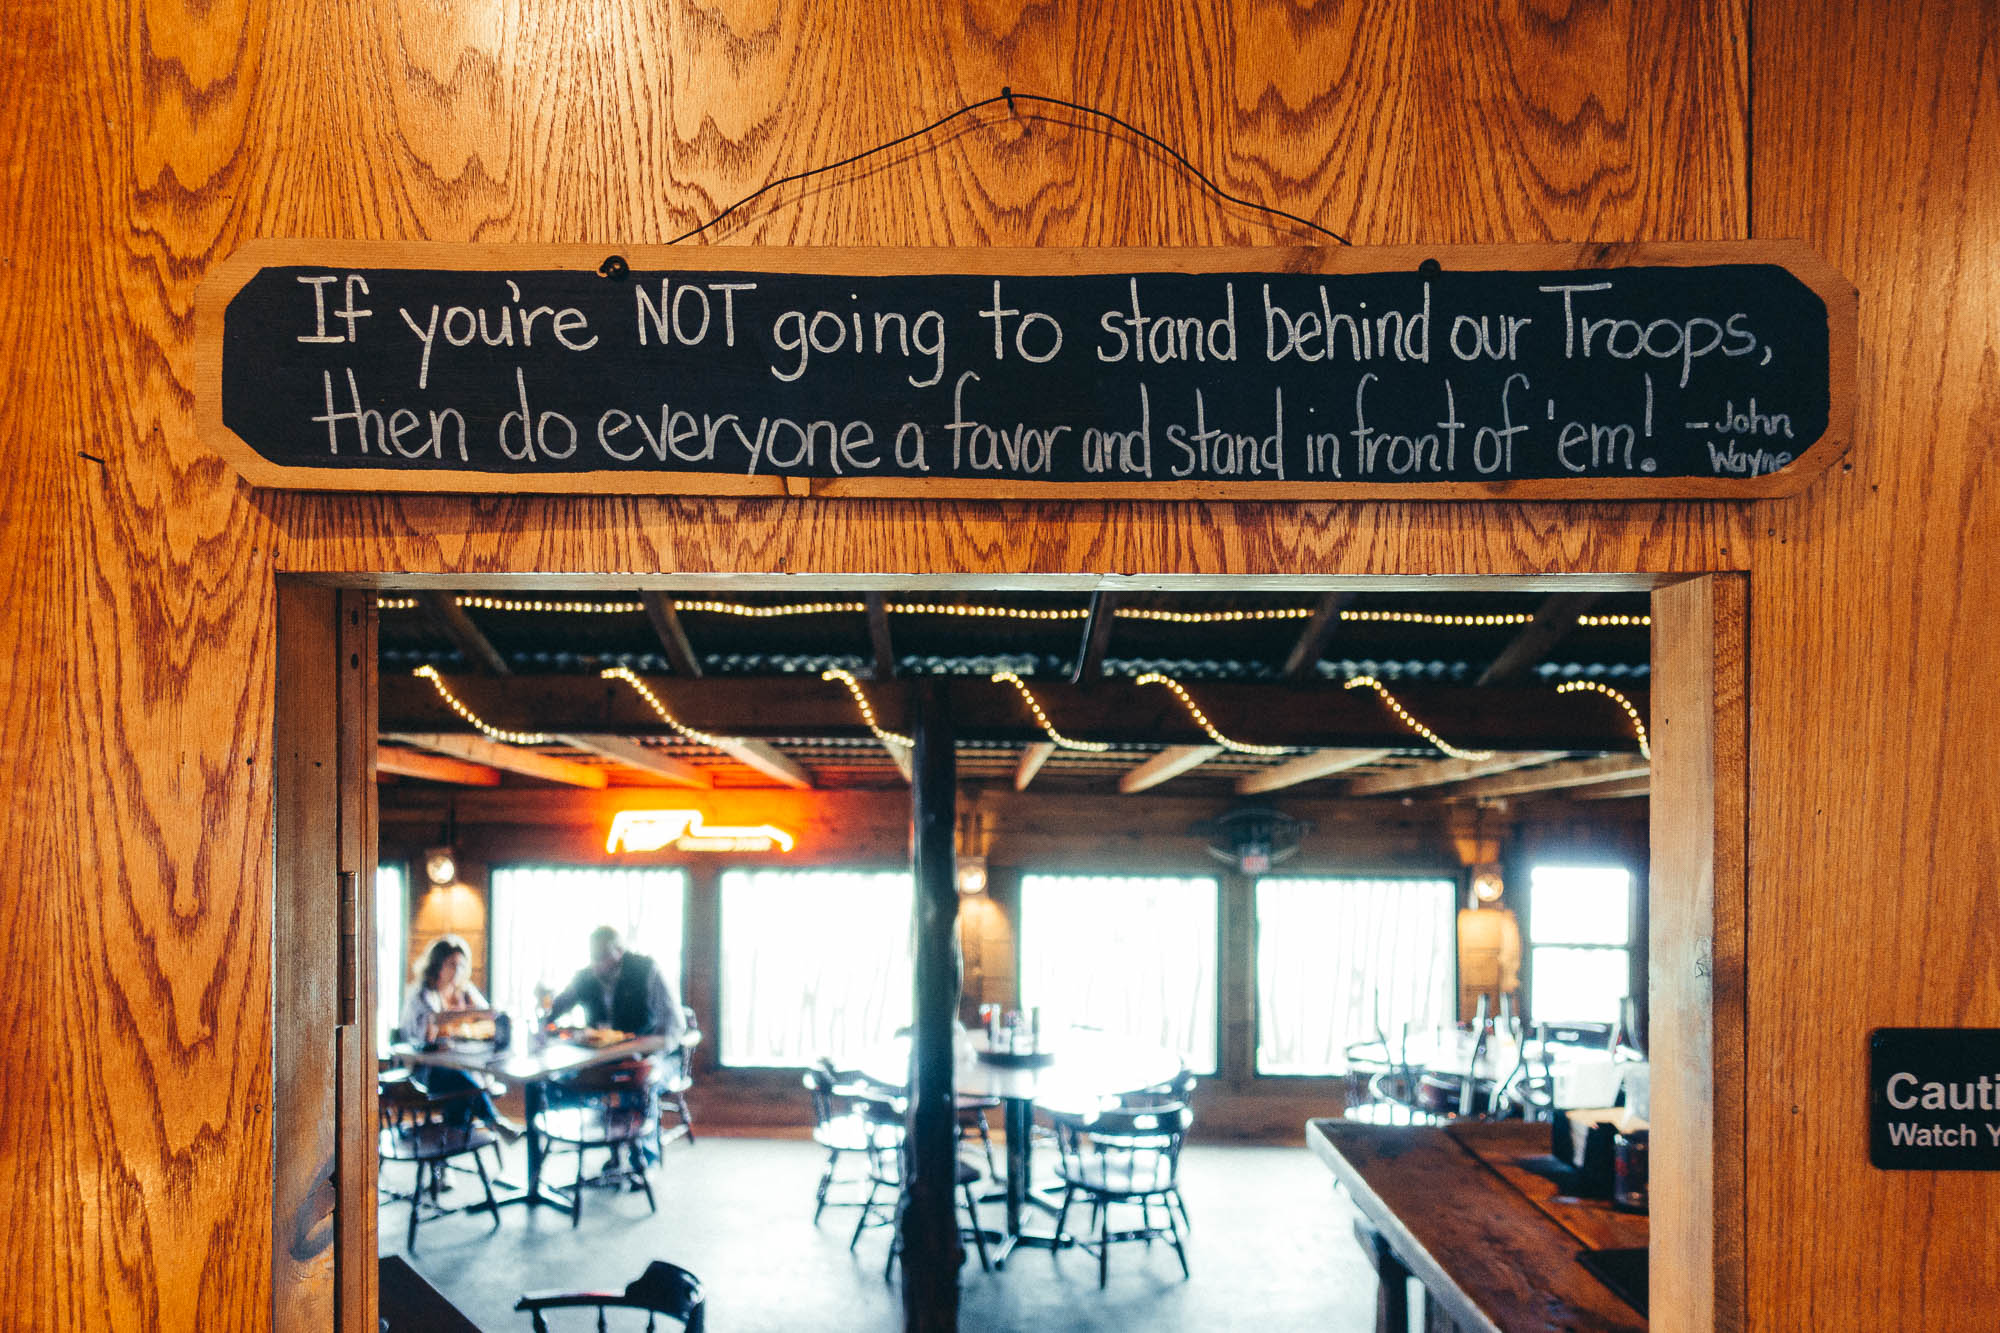 If you're NOT going to stand behind our Troops,
then do everyone a favor and stand in front of 'em!
-John
Wayne
Cauti
Watch Y